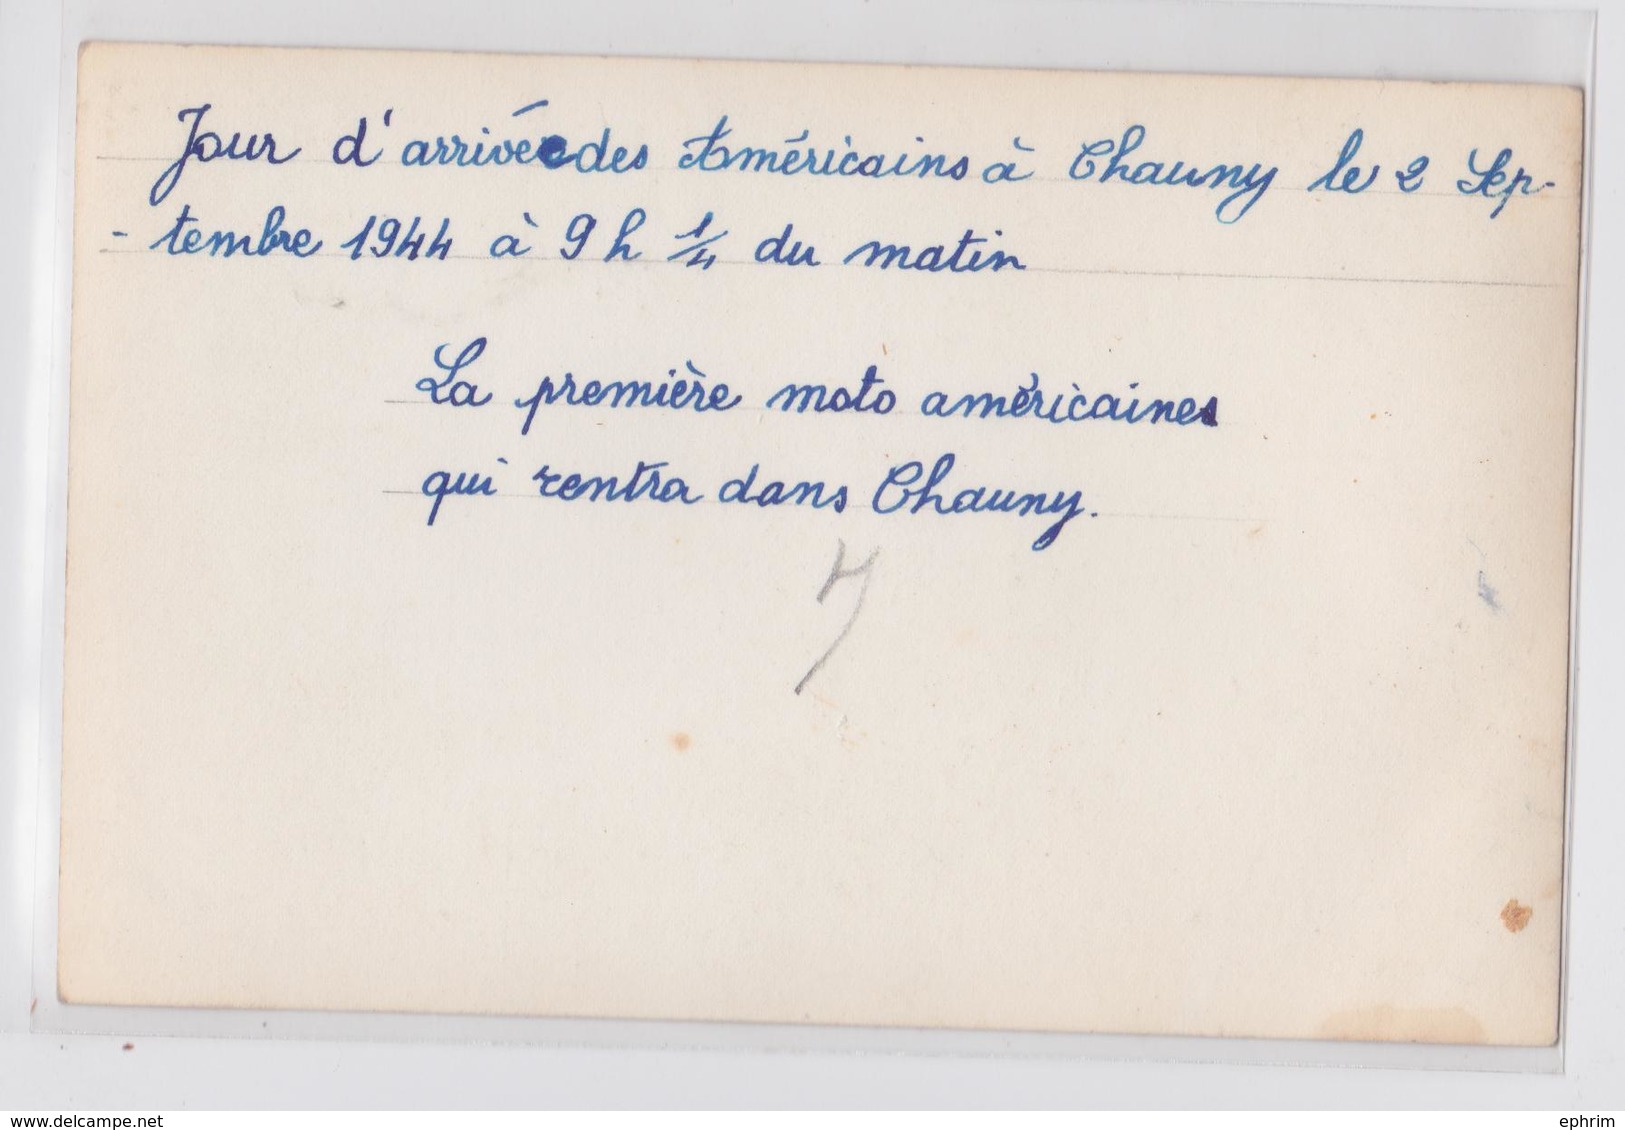 Jour d'arrivée des Américains à Chauny le 2 Sep-
- tembre 1944 à 9 h 1/4 du matin
La première moto américaines
qui rentra dans Chauny.
delcampe.net
ephrim